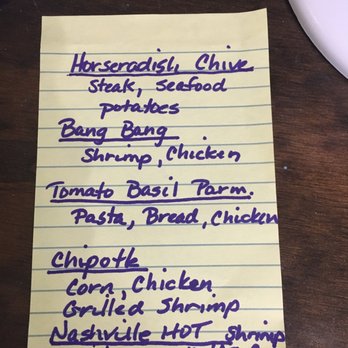 Horseradish Chive
Steak, Seafood
potatoes
Bang Bang
Shrimp, Chicken
Tomato Basil Parm.
Pasta, Bread, Chicken
Chipotle
Corn, Chicken
Grilled Shrimp
Nashville HOT Shrimp